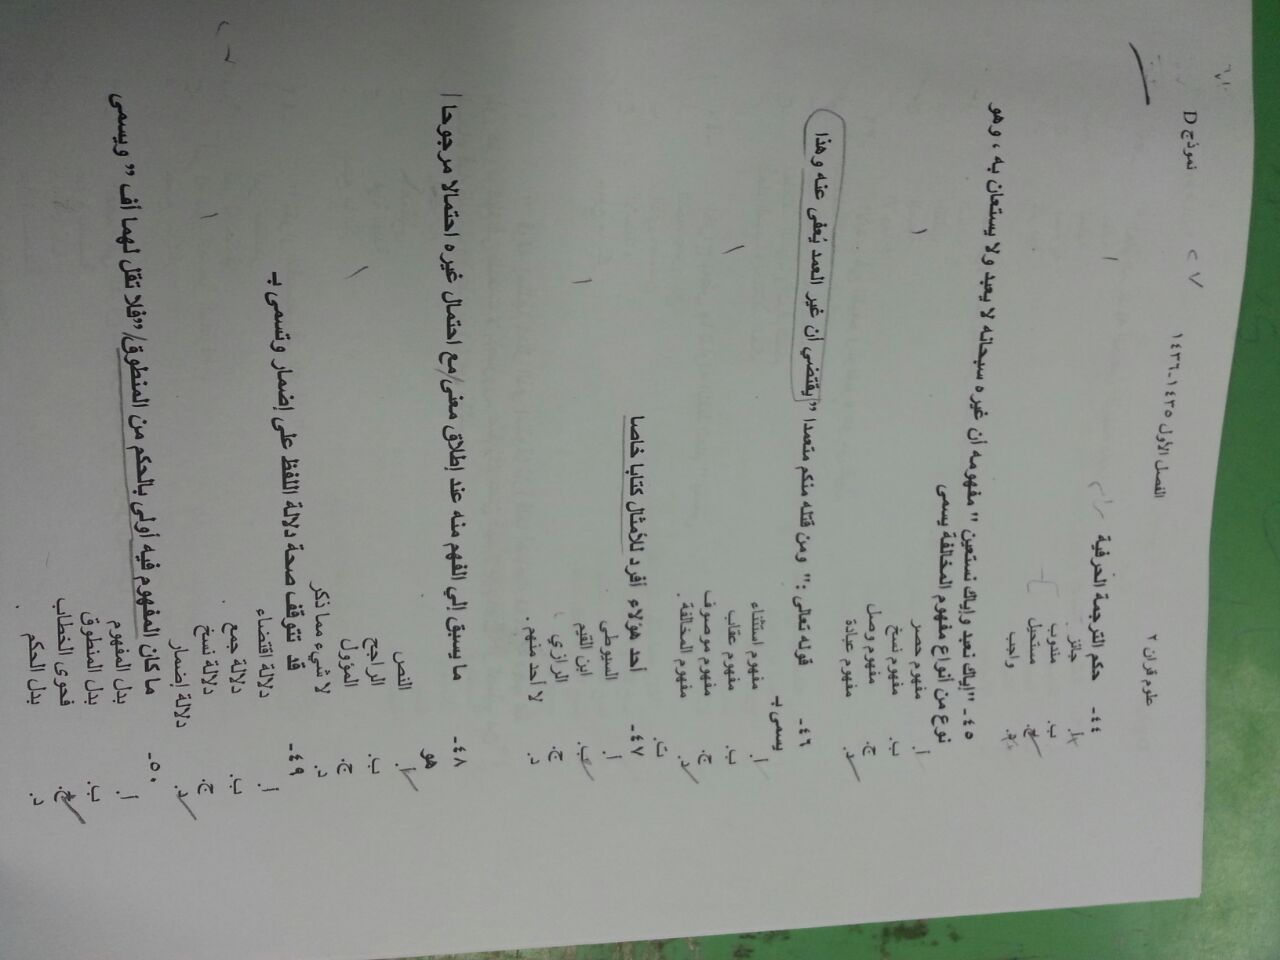 علوم قران ٢
الفصل الأول ١٤٣٥-١٤٣٦
نموذج D
٤٤- حكم الترجمة الحرفية
أ. جائز
ب. مندوب
ج. مستحيل
د. واجب
٤٥- "إياك نعبد وإياك نستعين" مفهومه أن غيره سبحانه لا يعبد ولا يستعان به ، وهو
نوع من أنواع مفهوم المخالفة يسمى
أ. مفهوم حصر
ب. مفهوم نسخ
ج. مفهوم وصل
د. مفهوم عبادة
٤٦- قوله تعالى :" ومن قتله منكم متعمدا " يقتضي أن غير العمد يُعفى عنه وهذا
يسمى بـ
أ. مفهوم استثناء
ب. مفهوم عقاب
ج. مفهوم موصوف
د. مفهوم المخالفة .
ت.
٤٧- أحد هؤلاء أفرد للأمثال كتابا خاصا
أ. السيوطي
ب. ابن القيم
ج. الرازي
د. لا أحد منهم .
٤٨- ما يسبق إلي الفهم منه عند إطلاق معنى مع احتمال غيره احتمالا مرجوحا
هو
أ. النص
ب. الراجح
ج. المؤول
د. لا شيء مما ذكر
٤٩- قد تتوقف صحة دلالة اللفظ على إضمار وتسمى بـ
أ. دلالة اقتضاء
ب. دلالة جمع .
ج. دلالة نسخ
د. دلالة إضمار
٥٠- ما كان المفهوم فيه أولى بالحكم من المنطوق "فلا تقل لهما أف " ويسمى
أ. بدل المفهوم
ب. بدل المنطوق
ج. فحوى الخطاب
د. بدل الحكم .